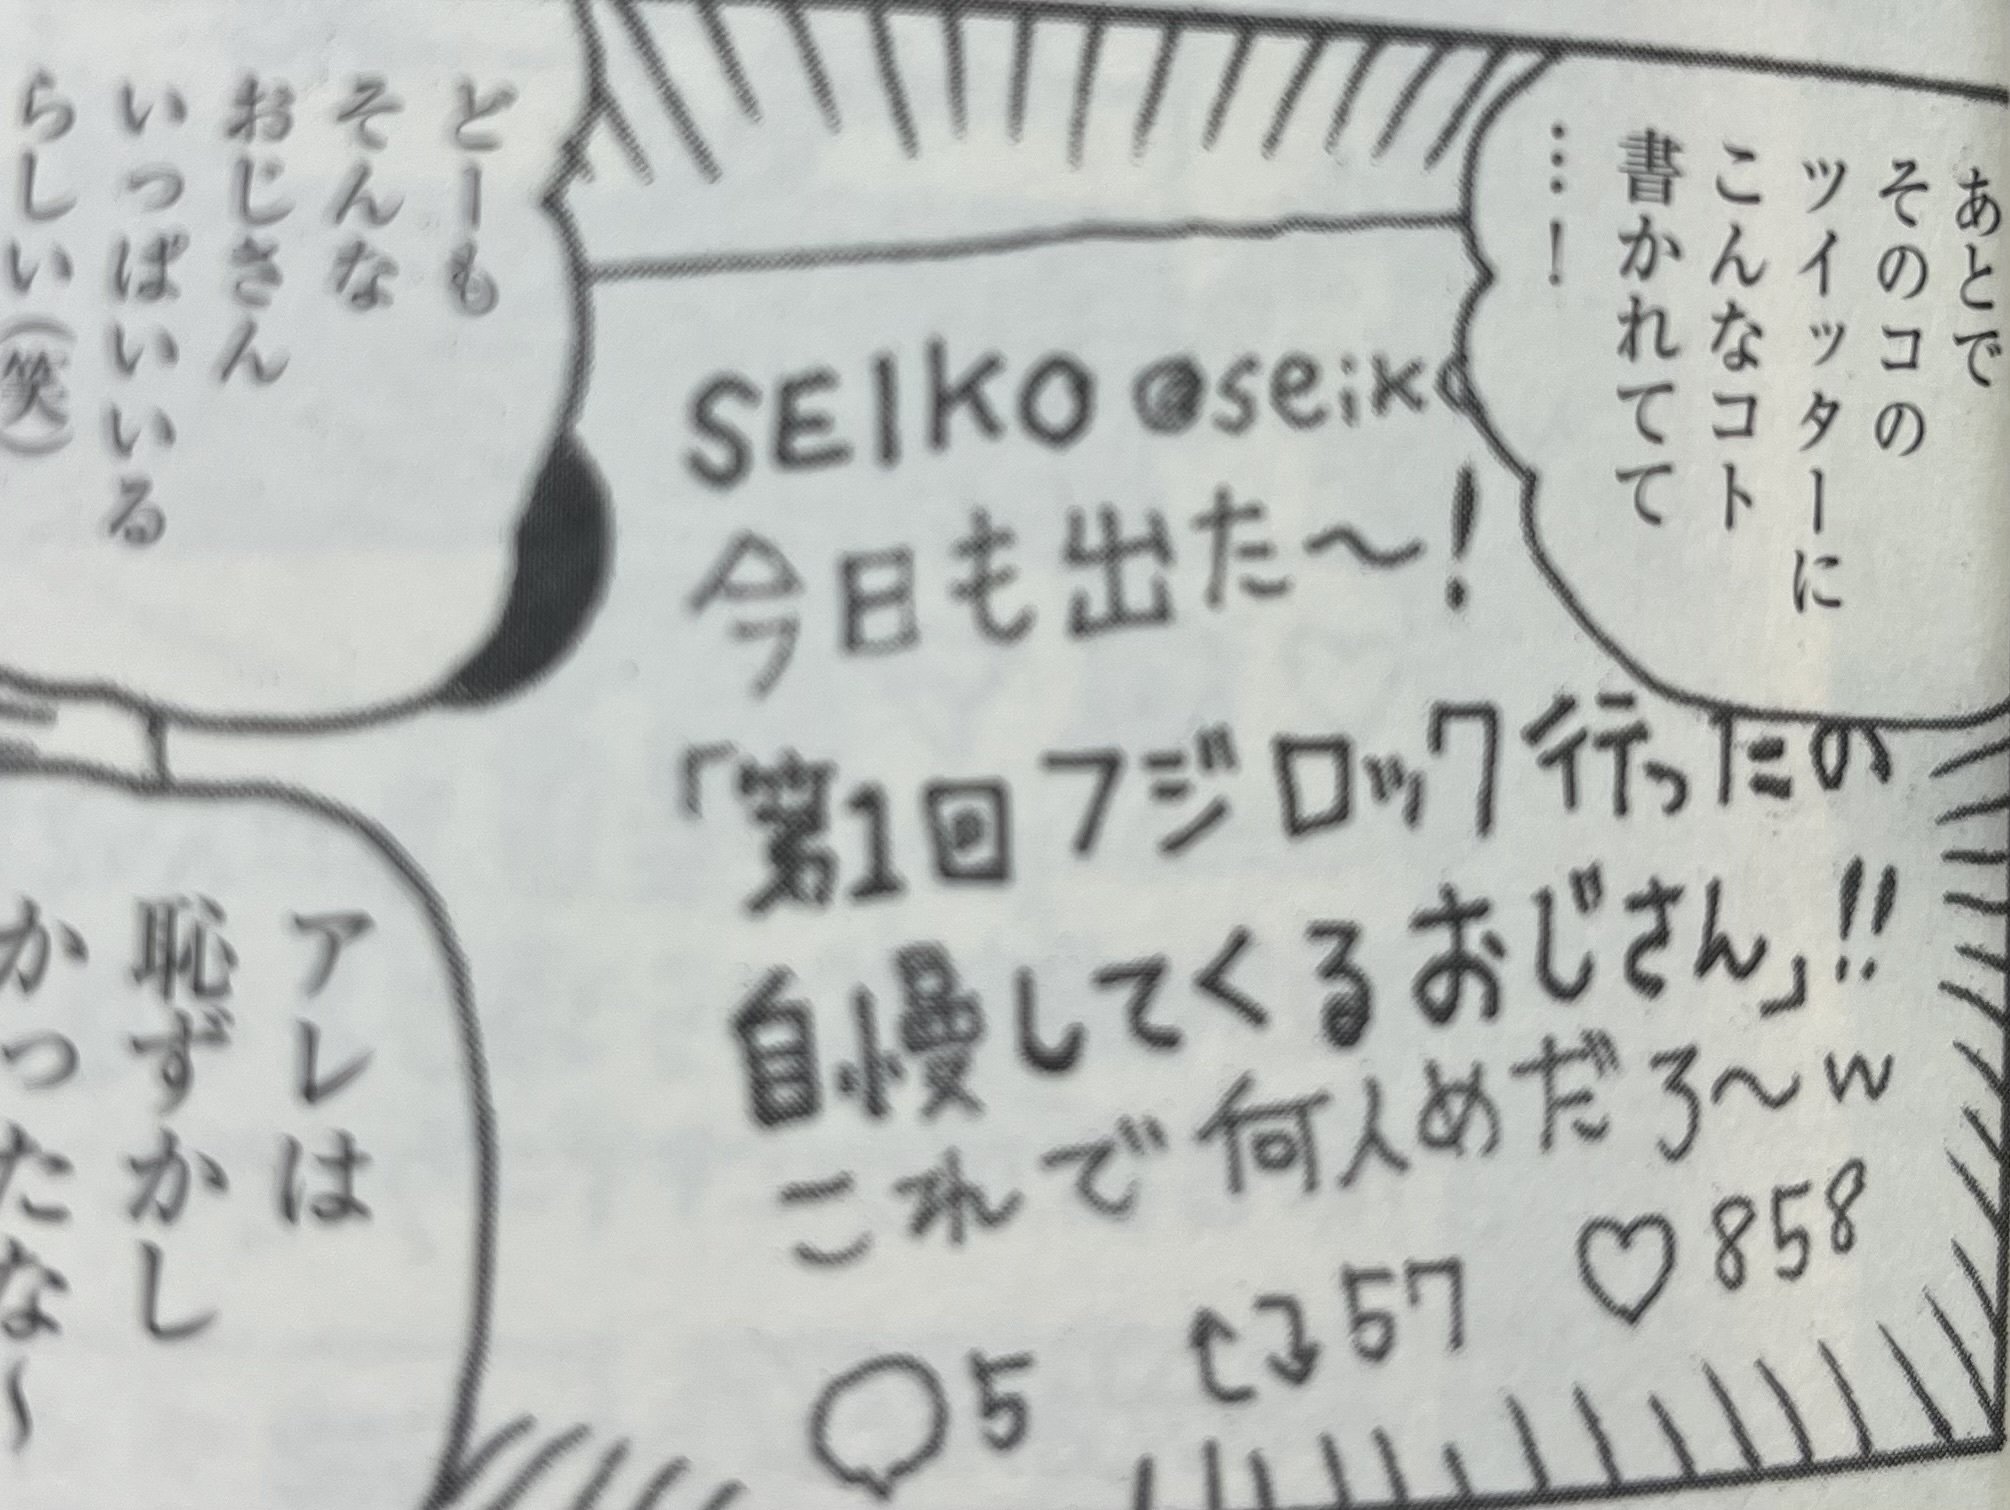 あとで
そのコの
ツイッターに
こんなコト
書かれてて
…！
SEIKO @seiko
今日も出た〜！
「第1回フジロック行ったの
自慢してくるおじさん」!!
これで何人めだろ〜w
5 57 ♡858
どーも
そんな
おじさん
いっぱいいる
らしい（笑）
アレは
恥ずかし
かったな〜